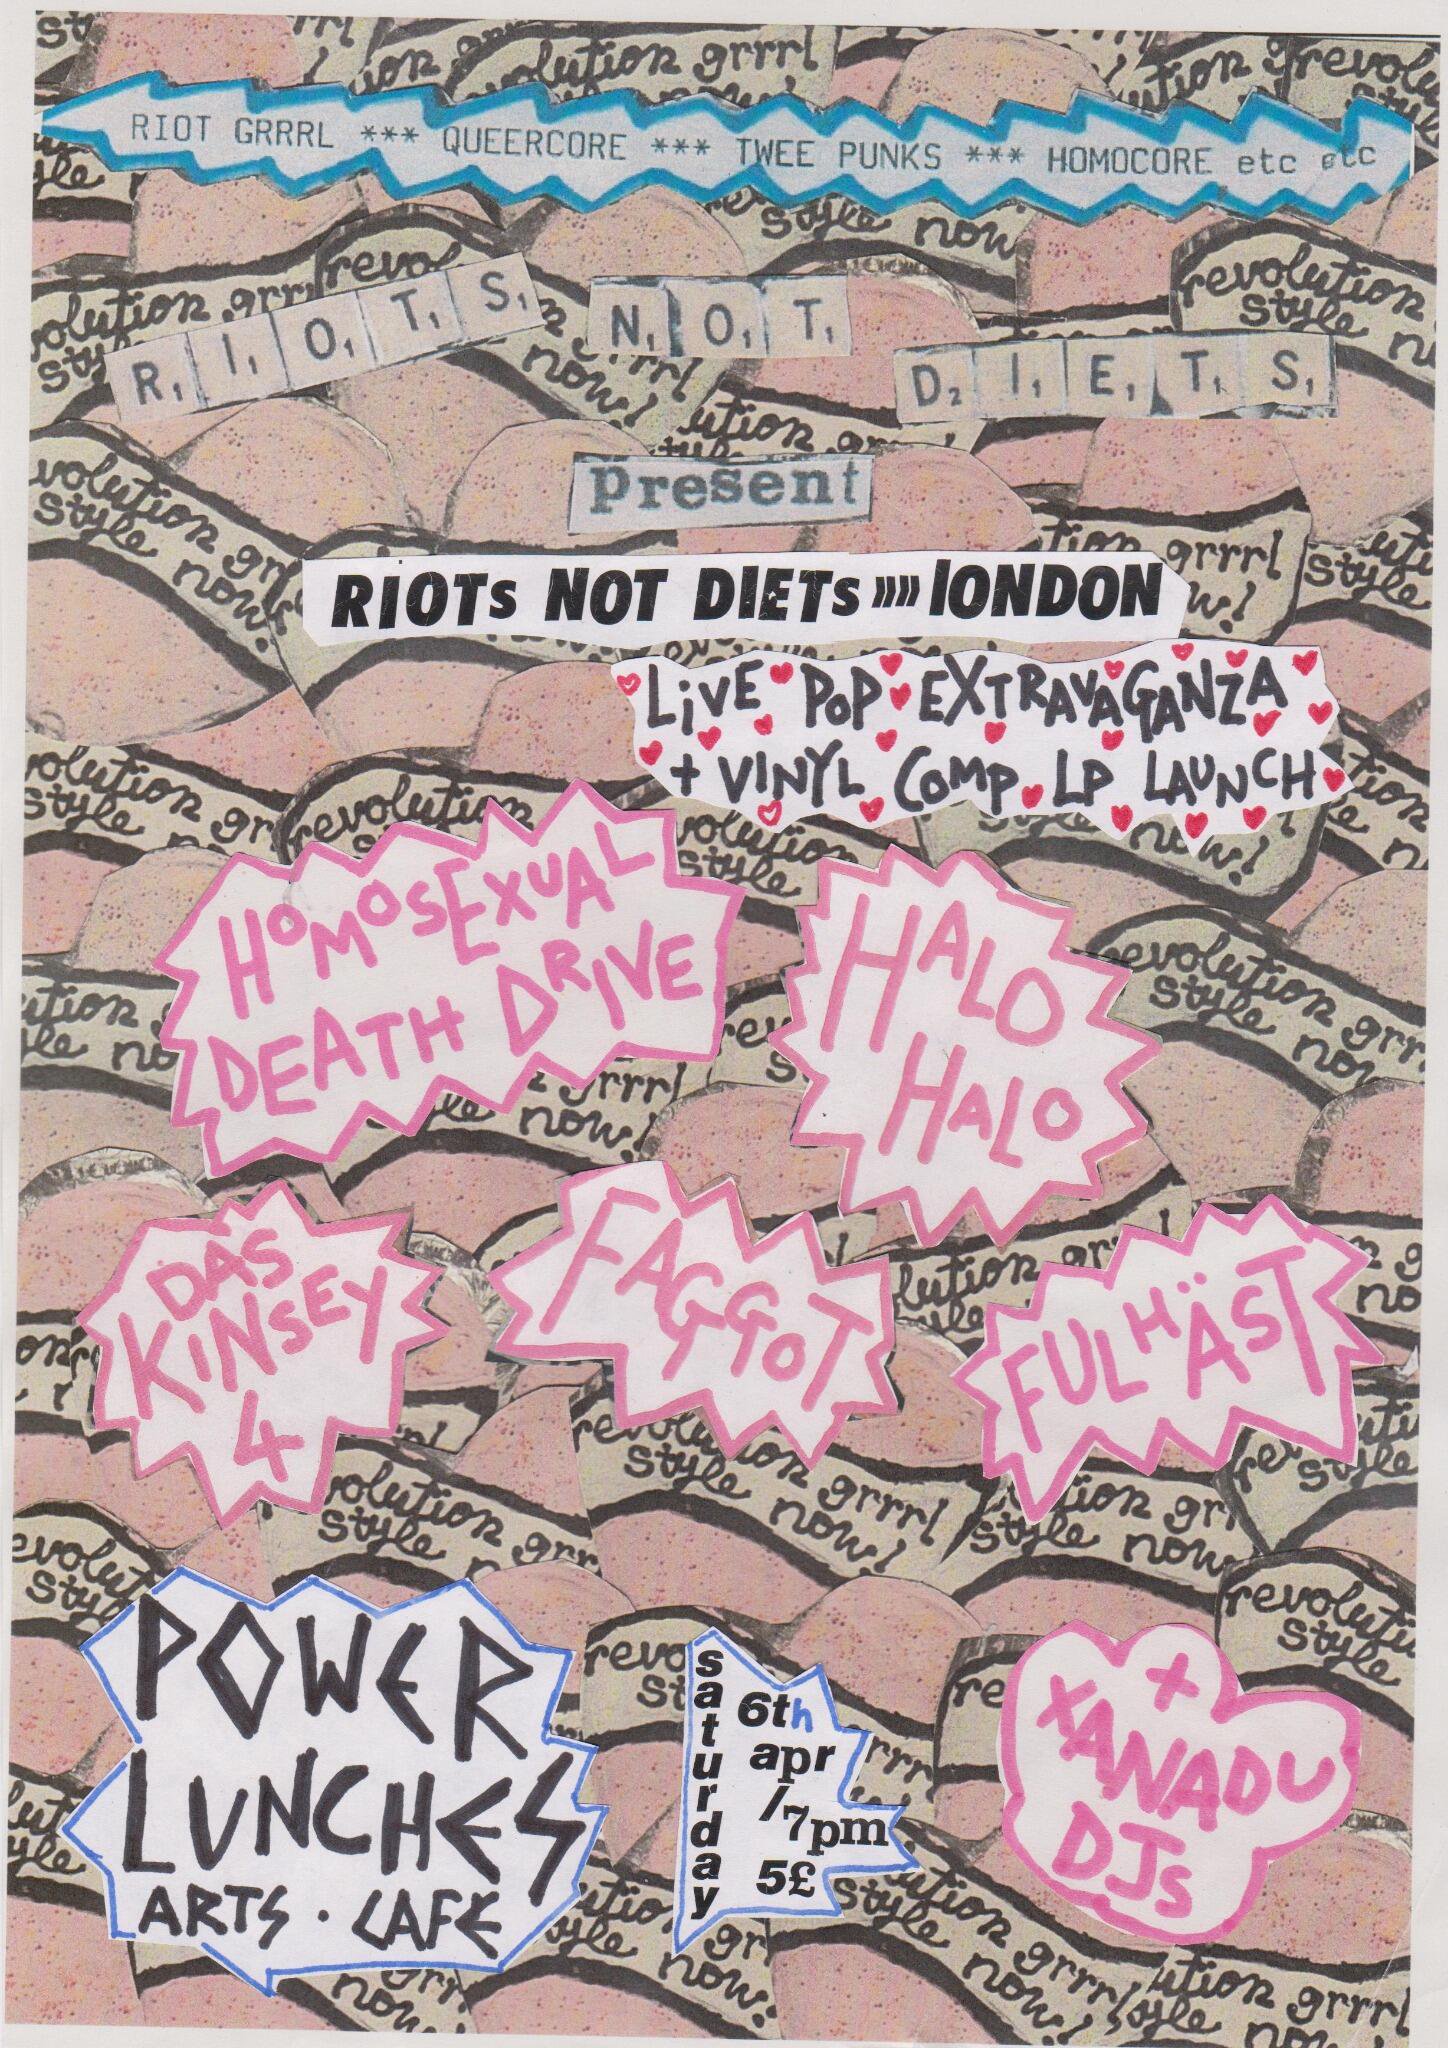 RIOT GRRRL *** QUEERCORE *** TWEE PUNKS *** HOMOCORE etc etc
R1 I1 O1 T1 S1 N1 O1 T1 D2 I1 E1 T1 S1
present
RIOTs NOT DIETs »» lONDON
LiVE POP EXTRAVAGANZA
+ VINYL COMP LP LAUNCH
HOMOSEXUAL
DEATH DRIVE
HALO
HALO
DAS
KINSEY
4
FAGGOT
FULHÄST
POWER
LUNCHES
ARTS . CAFE
saturday
6th
apr
/7pm
5£
+
XANADU
DJs
revolution grrrl
style now!